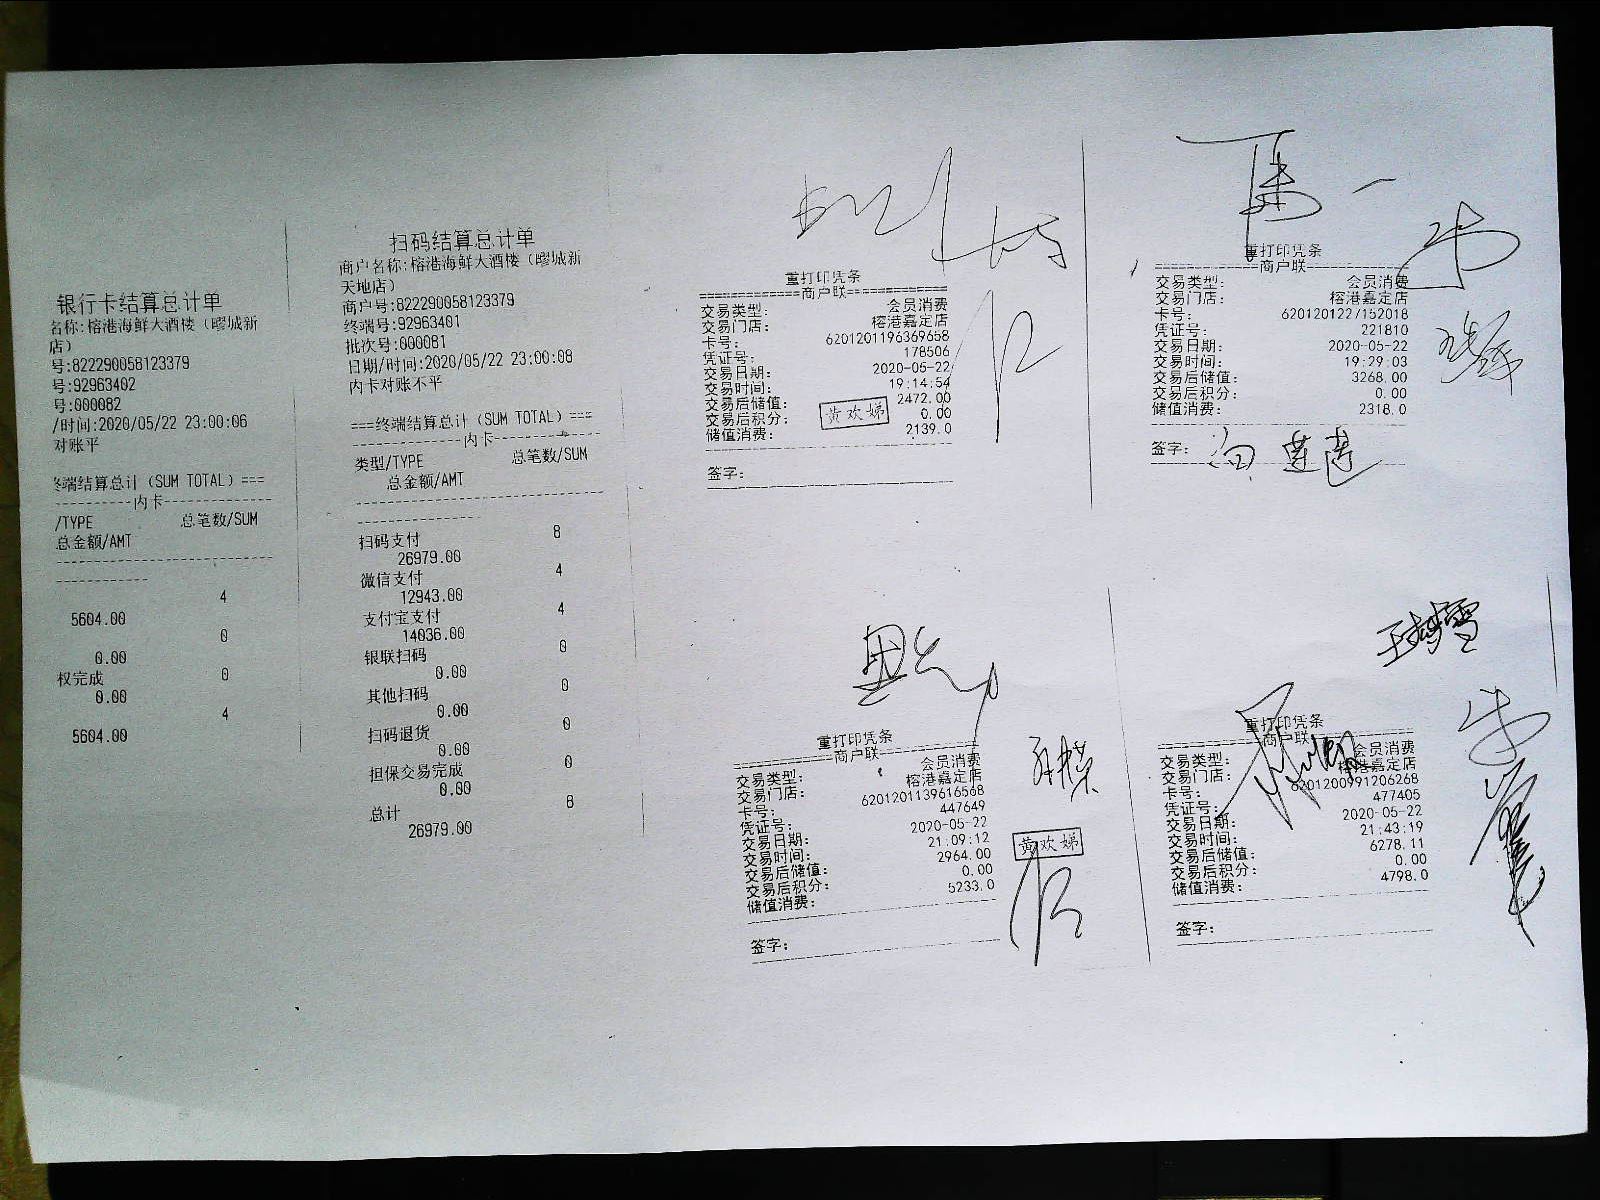 银行卡结算总计单
名称:榕港海鲜大酒楼（疁城新
店）
号:822290058123379
号:92963402
号:000082
/时间:2020/05/22 23:00:06
对账平
终端结算总计（SUM TOTAL）===
内卡
/TYPE 总笔数/SUM
总金额/AMT
4
5604.00
0
0.00
权完成 0
0.00
4
5604.00
扫码结算总计单
商户名称:榕港海鲜大酒楼（疁城新
天地店）
商户号:822290058123379
终端号:92963401
批次号:000081
日期/时间:2020/05/22 23:00:08
内卡对账不平
===终端结算总计（SUM TOTAL）===
内卡
类型/TYPE 总笔数/SUM
总金额/AMT
扫码支付 8
26979.00
微信支付 4
12943.00
支付宝支付 4
14036.00
银联扫码 0
0.00
其他扫码 0
0.00
扫码退货 0
0.00
担保交易完成 0
0.00
总计 8
26979.00
重打印凭条
商户联
交易类型: 会员消费
交易门店: 榕港嘉定店
卡号: 6201201196369658
凭证号: 178506
交易日期: 2020-05-22
交易时间: 19:14:54
交易后储值: 2472.00
交易后积分: 0.00
储值消费: 2139.0
黄欢娣
签字:
重打印凭条
商户联
交易类型: 会员消费
交易门店: 榕港嘉定店
卡号: 6201201227152018
凭证号: 221810
交易日期: 2020-05-22
交易时间: 19:29:03
交易后储值: 3268.00
交易后积分: 0.00
储值消费: 2318.0
签字:
重打印凭条
商户联
交易类型: 会员消费
交易门店: 榕港嘉定店
卡号: 6201201139616568
凭证号: 447649
交易日期: 2020-05-22
交易时间: 21:09:12
交易后储值: 2964.00
交易后积分: 0.00
储值消费: 5233.0
黄欢娣
签字:
重打印凭条
商户联
交易类型: 会员消费
交易门店: 榕港嘉定店
卡号: 6201200991206268
凭证号: 477405
交易日期: 2020-05-22
交易时间: 21:43:19
交易后储值: 6278.11
交易后积分: 0.00
储值消费: 4798.0
签字: